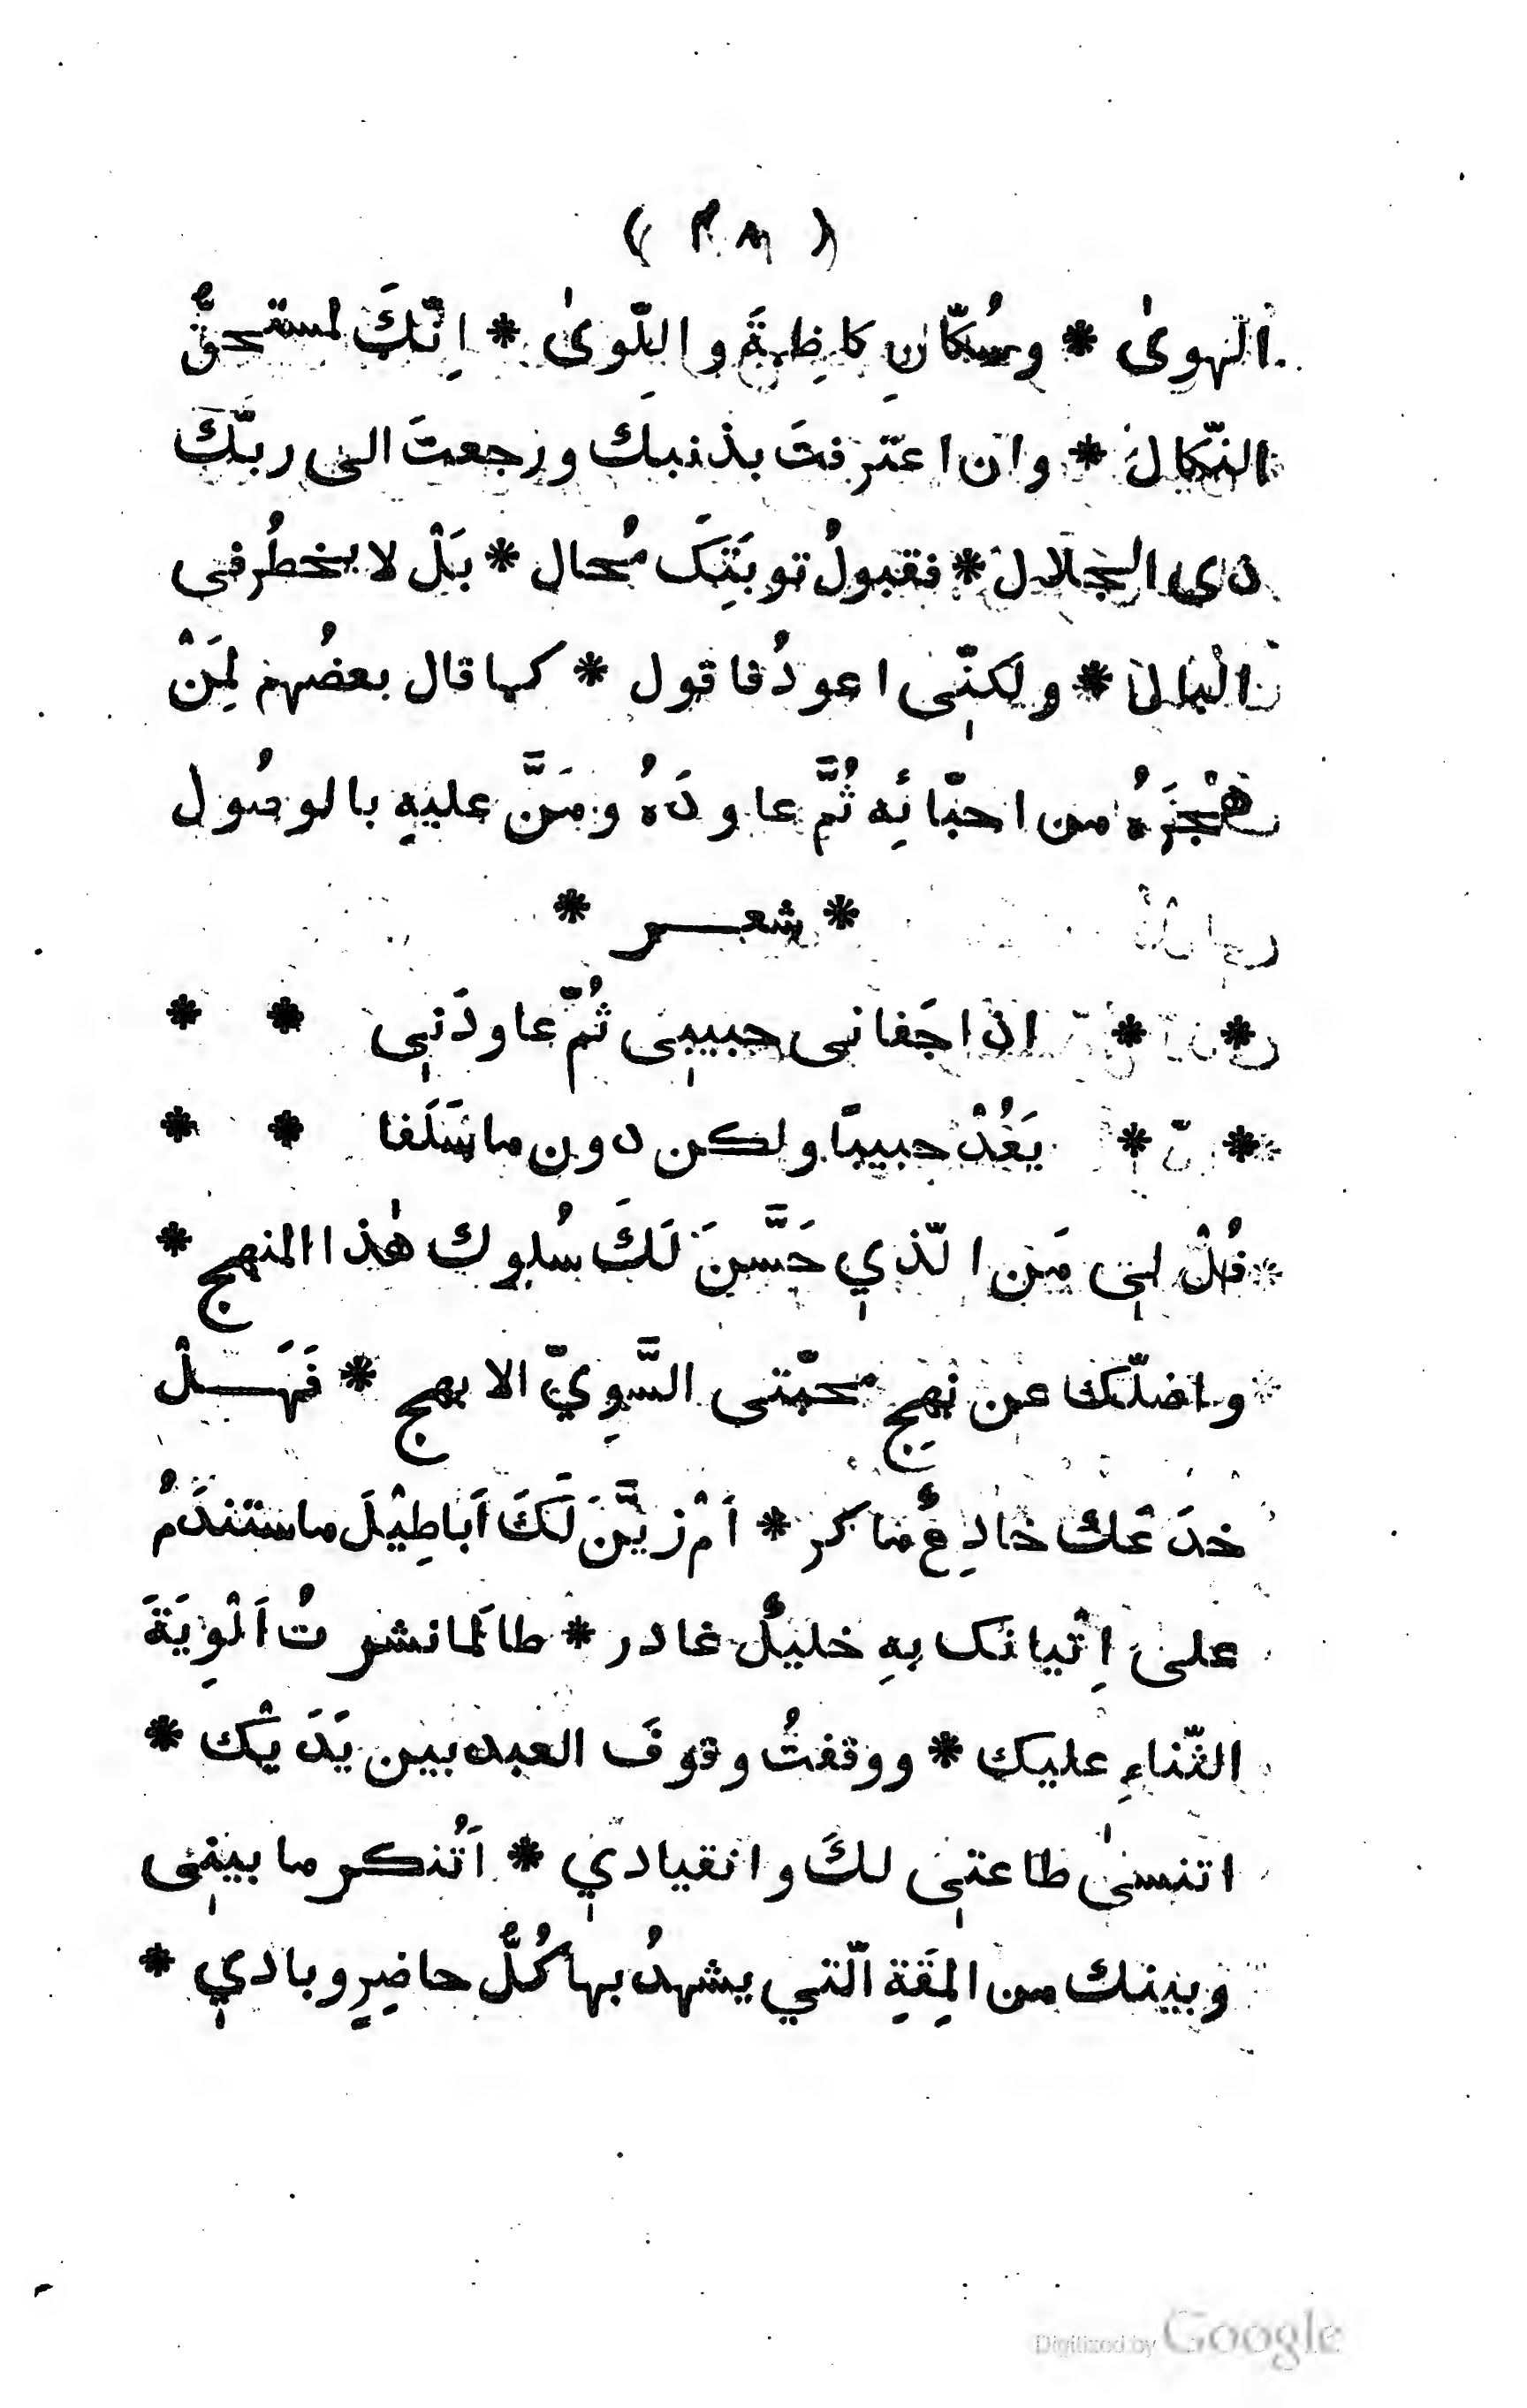 الهوىٰ * وسُكّانِ كاظِمةَ واللِّوىٰ * اِنّكَ لمستحقُّ
النّكال * وان اعترفتَ بذنبك ورجعتَ الى ربّكَ
ذى الجلال * فقبولُ توبَتِكَ مُحال * بَلْ لا يخطُر فى
الْبال * ولكنّنِى اعودُ فاقول * كما قال بعضُهم لِمَنْ
هْجَرَهُ من احبّائِه ثُمَّ عاودَهُ ومَنَّ عليهِ بالوصُول
* شعـــر *
* * اذا جَفانى حبيبِى ثُمّ عاودَنِى * *
* * يَعُدْ حبيبًا ولكن دون ما سَلَفا * *
قُلْ لِى مَن الّذِي حَسَّنَ لَكَ سُلوك هٰذا المنهج *
واضلّك عن نهجِ محبّتى السَّوِيّ الابهج * فَهَـــلْ
خدَعَكَ خادِعٌ ماكر * اَمْ زيَّنَ لَكَ اَباطِيْلَ ما ستندَمُ
على اِتْيانك بهِ خليلٌ غادر * طالَما نشرتُ اَلْوِيَةَ
الثّناءِ عليك * ووقفتُ وقوفَ العبد بين يَدَيْك *
اتنسىٰ طاعتِى لكَ وانقيادِي * اَتُنكر ما بينِى
وبينك من المِقَةِ الّتي يشهدُ بها كُلُّ حاضِرٍ وبادِي *
Digitized by Google